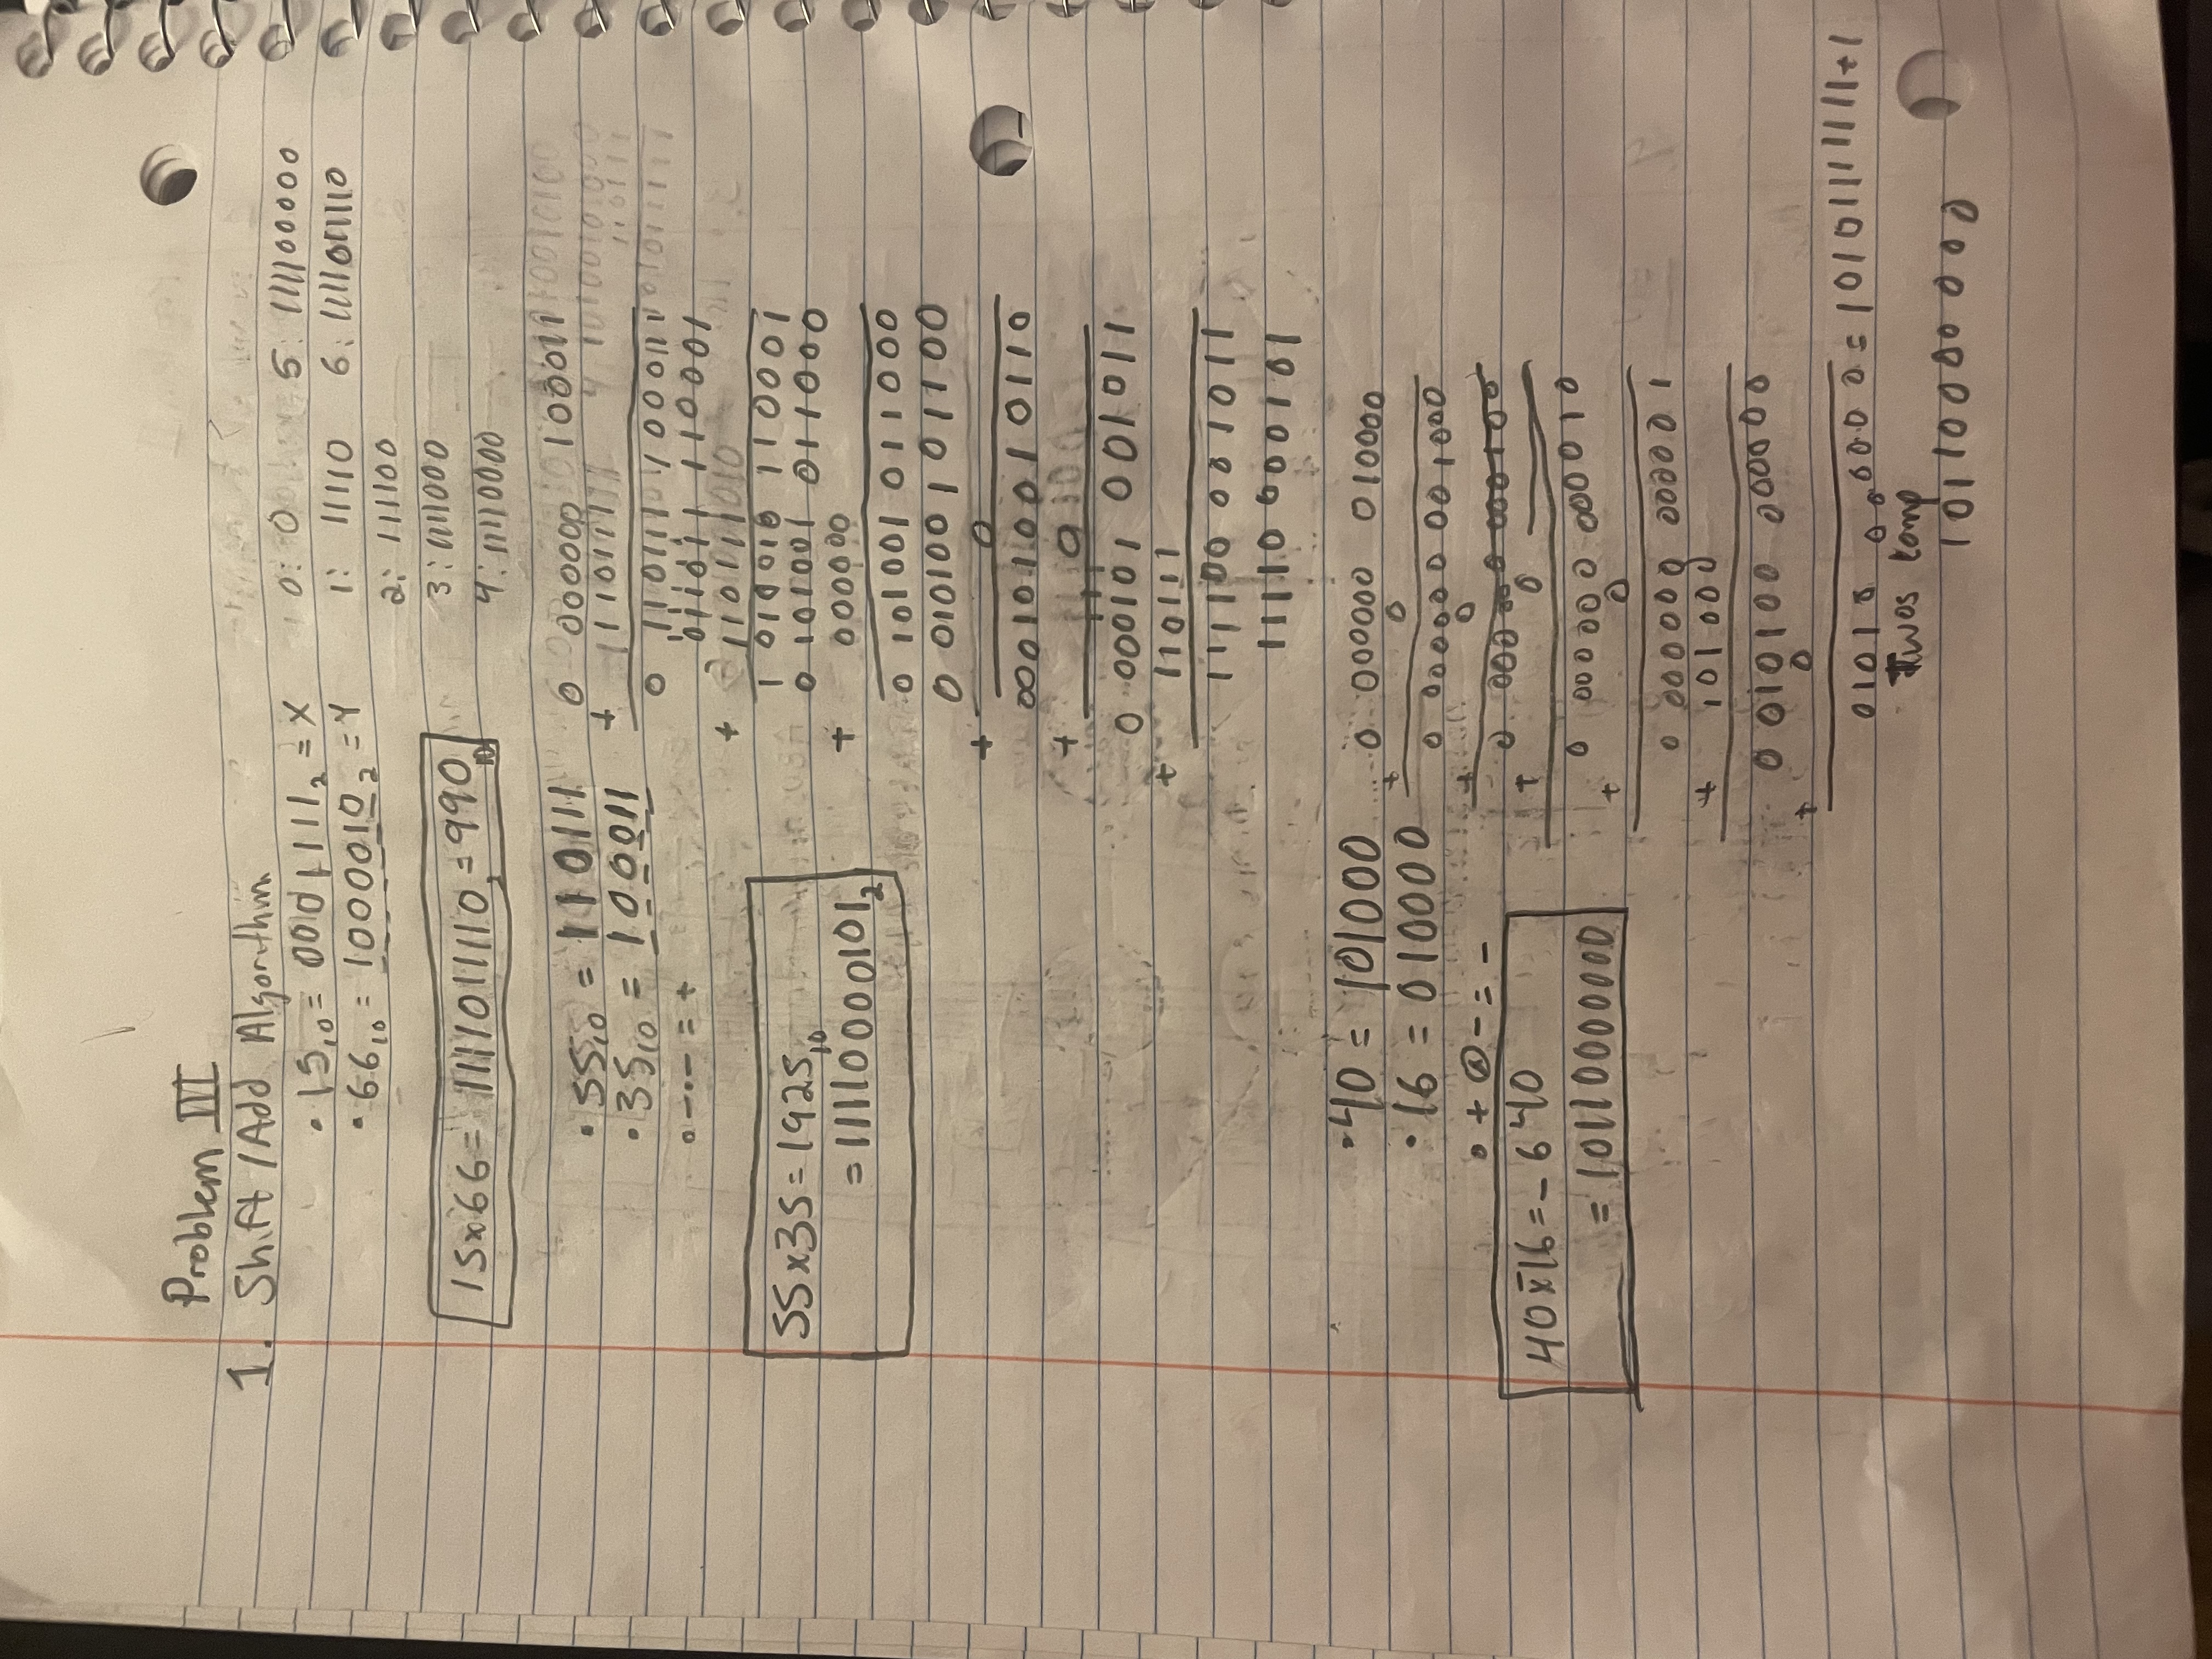 Problem III
1. Shift / Add Algorithm
• 15₁₀ = 0001111₂ = X
• 66₁₀ = 1000010₂ = Y
0: 0
1: 11110
2: 111100
3: 1111000
4: 11110000
5: 111100000
6: 1111011110
15x66 = 1111011110₂ = 990₁₀
• 55₁₀ = 110111
• 35₁₀ = 100011
• — · — = +
55x35 = 1925₁₀
= 11110000101₂
0 000000 100011
+ 110111
0 110111 100011
011011 110001
+ 110111
1 010010 110001
0 101001 011000
+ 000000
0 101001 011000
0 010100 101100
+ 0
0 001010 010110
+ 0
0 000101 001011
+ 110111
111100 001011
11110 000101
• 40 = 101000
• 16 = 010000
• + ⊗ - = -
40x̄16 = -640
= 10110000000
0 000000 010000
+ 0
0 000000 001000
+ 0
0 000000 000100
+ 0
0 000000 000010
+ 0
0 000000 000001
+ 101000
0 010100 000000
+ 0
01010 000000 = 10101111111+1
Twos comp
10110000000